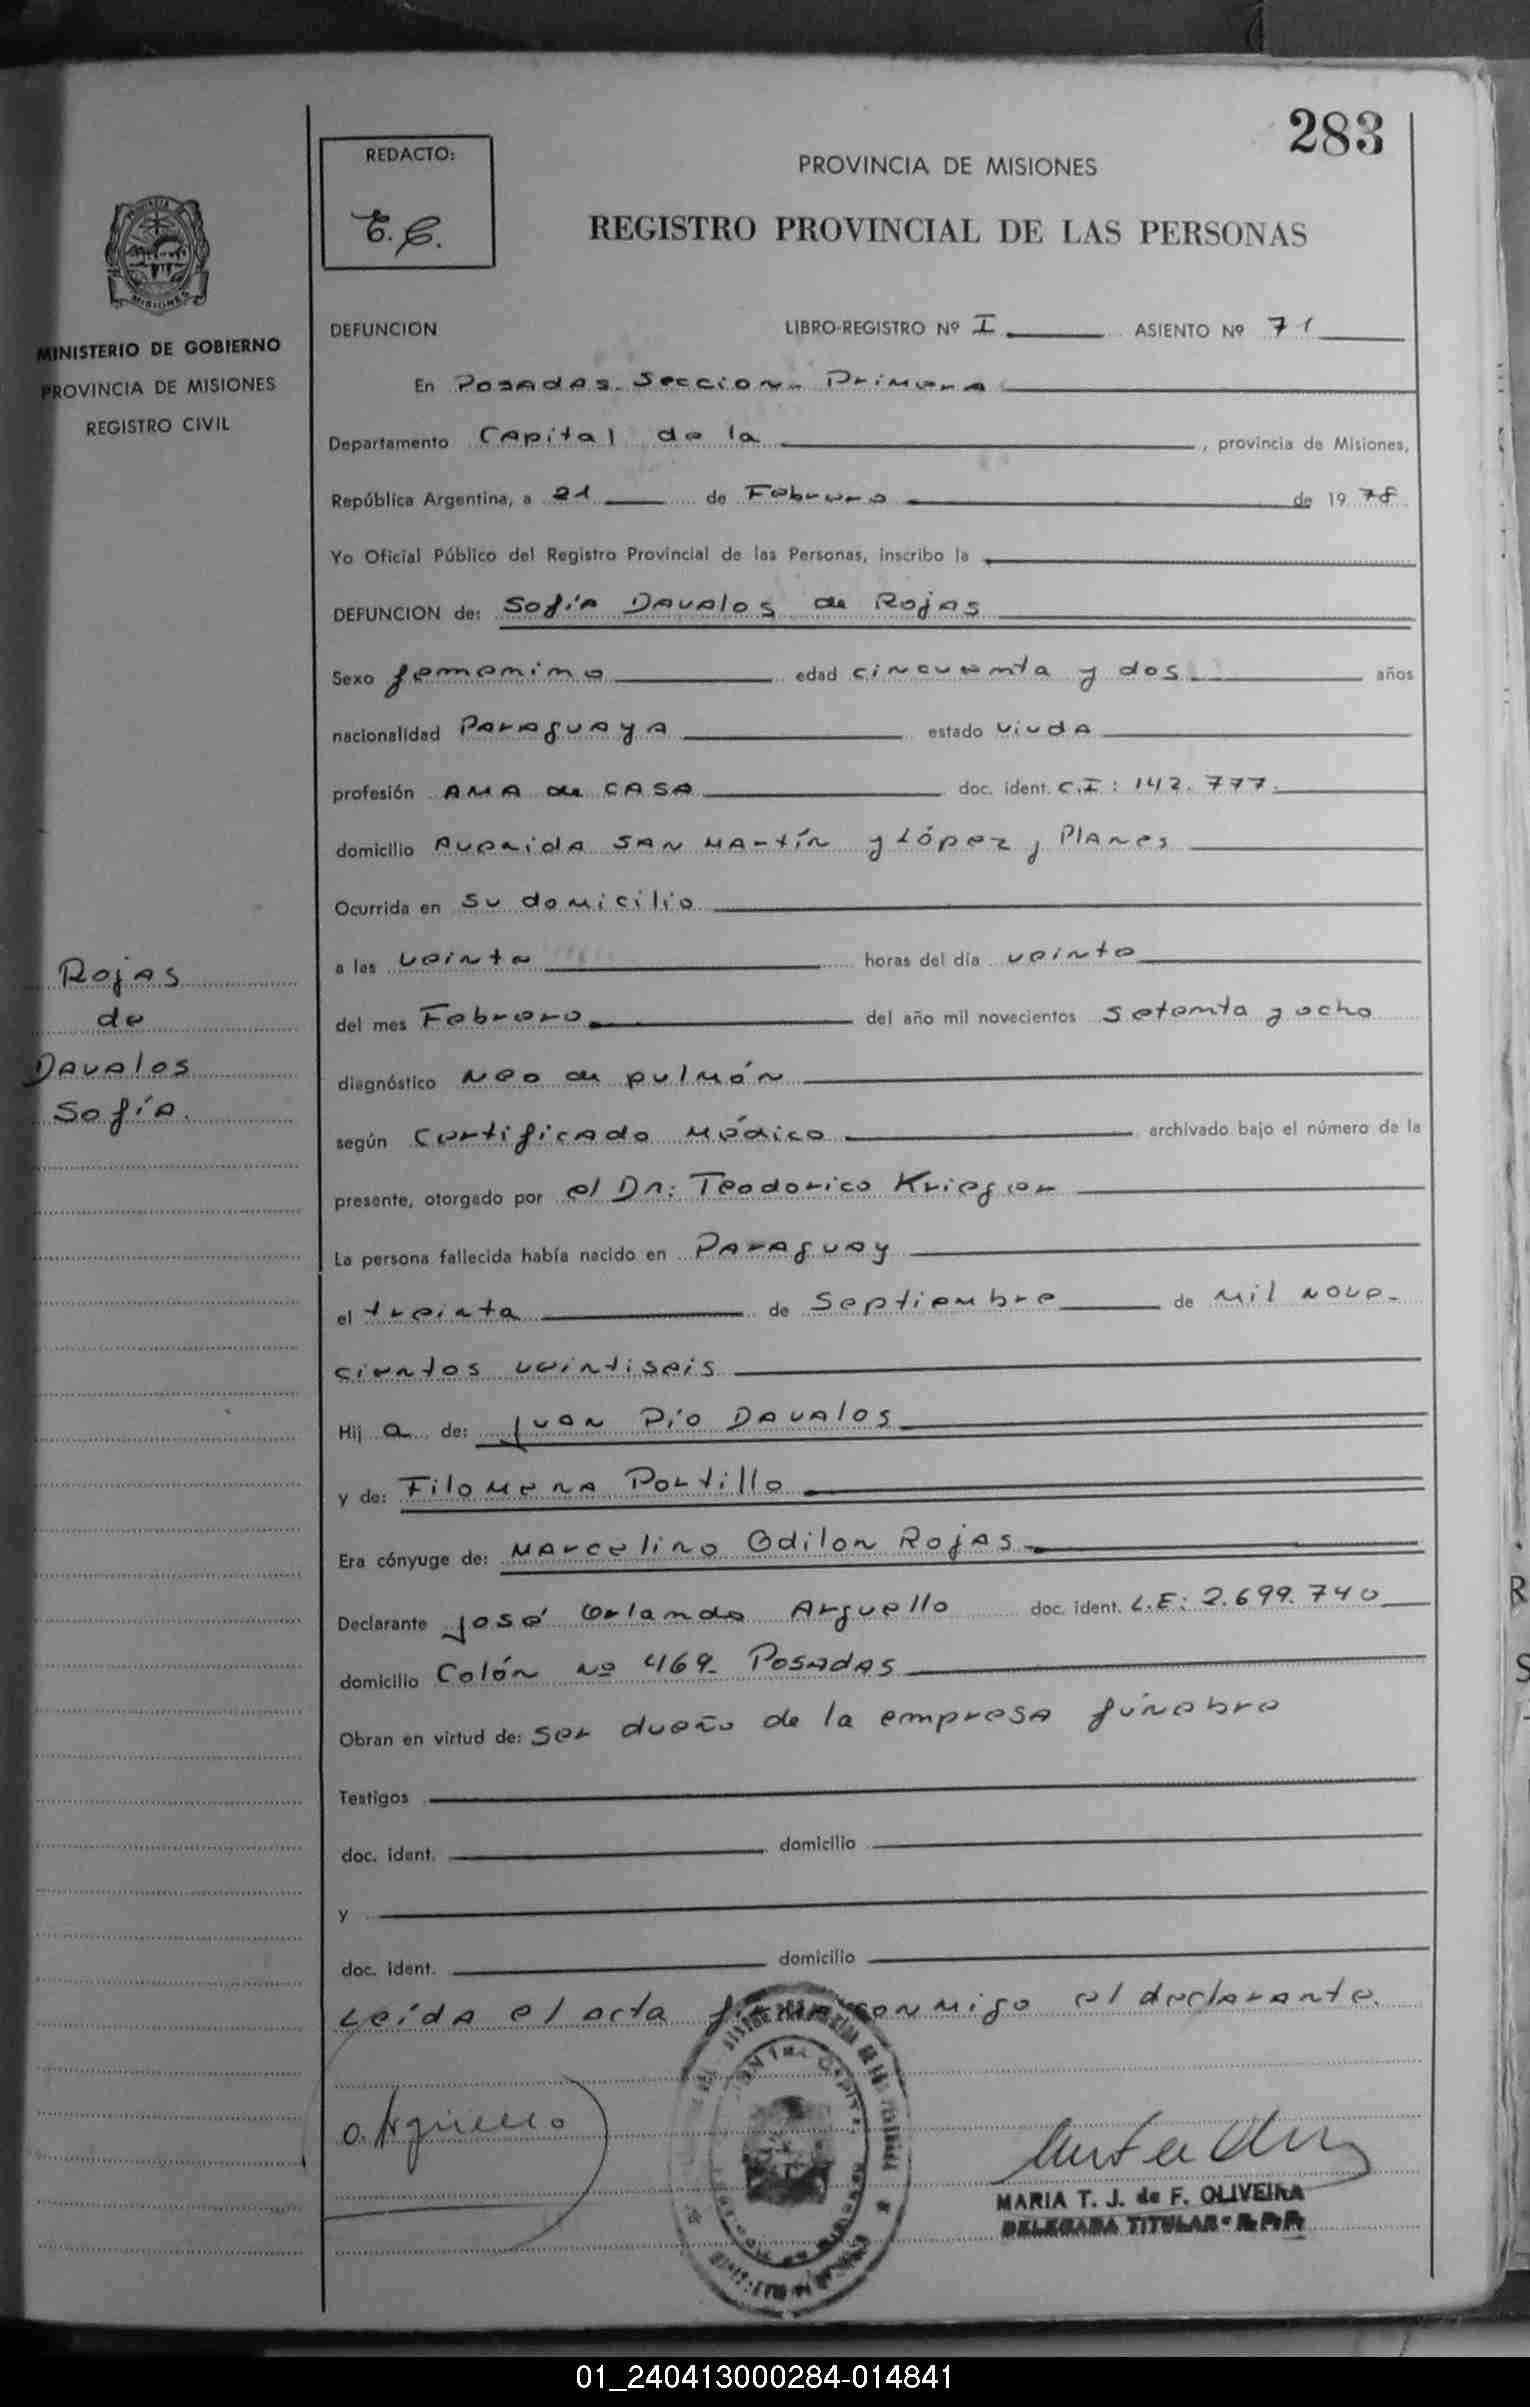 283
REDACTO:
PROVINCIA DE MISIONES
REGISTRO PROVINCIAL DE LAS PERSONAS
MISIONES
MINISTERIO DE GOBIERNO
PROVINCIA DE MISIONES
REGISTRO CIVIL
DEFUNCION LIBRO-REGISTRO Nº I ASIENTO Nº 71
En Posadas. Seccion. Primera
Departamento Capital de la, provincia de Misiones,
República Argentina, a 21 de Febrero de 1978
Yo Oficial Público del Registro Provincial de las Personas, inscribo la
DEFUNCION de: Sofía Davalos de Rojas
Sexo femenino edad cincuenta y dos años
nacionalidad Paraguaya estado viuda
profesión AMA de CASA doc. ident. C.I: 142.777.
domicilio Avenida SAN MArtín y López y Planes
Ocurrida en su domicilio
a las veinte horas del día veinte
del mes Febrero del año mil novecientos setenta y ocho
diagnóstico Neo de pulmón
según Certificado Médico archivado bajo el número de la
presente, otorgado por el Dr: Teodorico Krieger
La persona fallecida había nacido en Paraguay
el treinta de Septiembre de mil nove-
cientos veintiseis
Hij a de: Juan Pío Davalos
y de: Filomena Portillo
Era cónyuge de: Marcelino Odilon Rojas
Declarante José Orlando Arguello doc. ident. L.E: 2.699.740
domicilio Colón Nº 469. Posadas
Obran en virtud de: ser dueño de la empresa fúnebre
Testigos
doc. ident. domicilio
y
doc. ident. domicilio
Leída el acta firma conmigo el declarante.
Rojas
de
Davalos
Sofía.
O. Arguello
MARIA T. J. de F. OLIVEIRA
DELEGADA TITULAR - R.P.P.
01_240413000284-014841